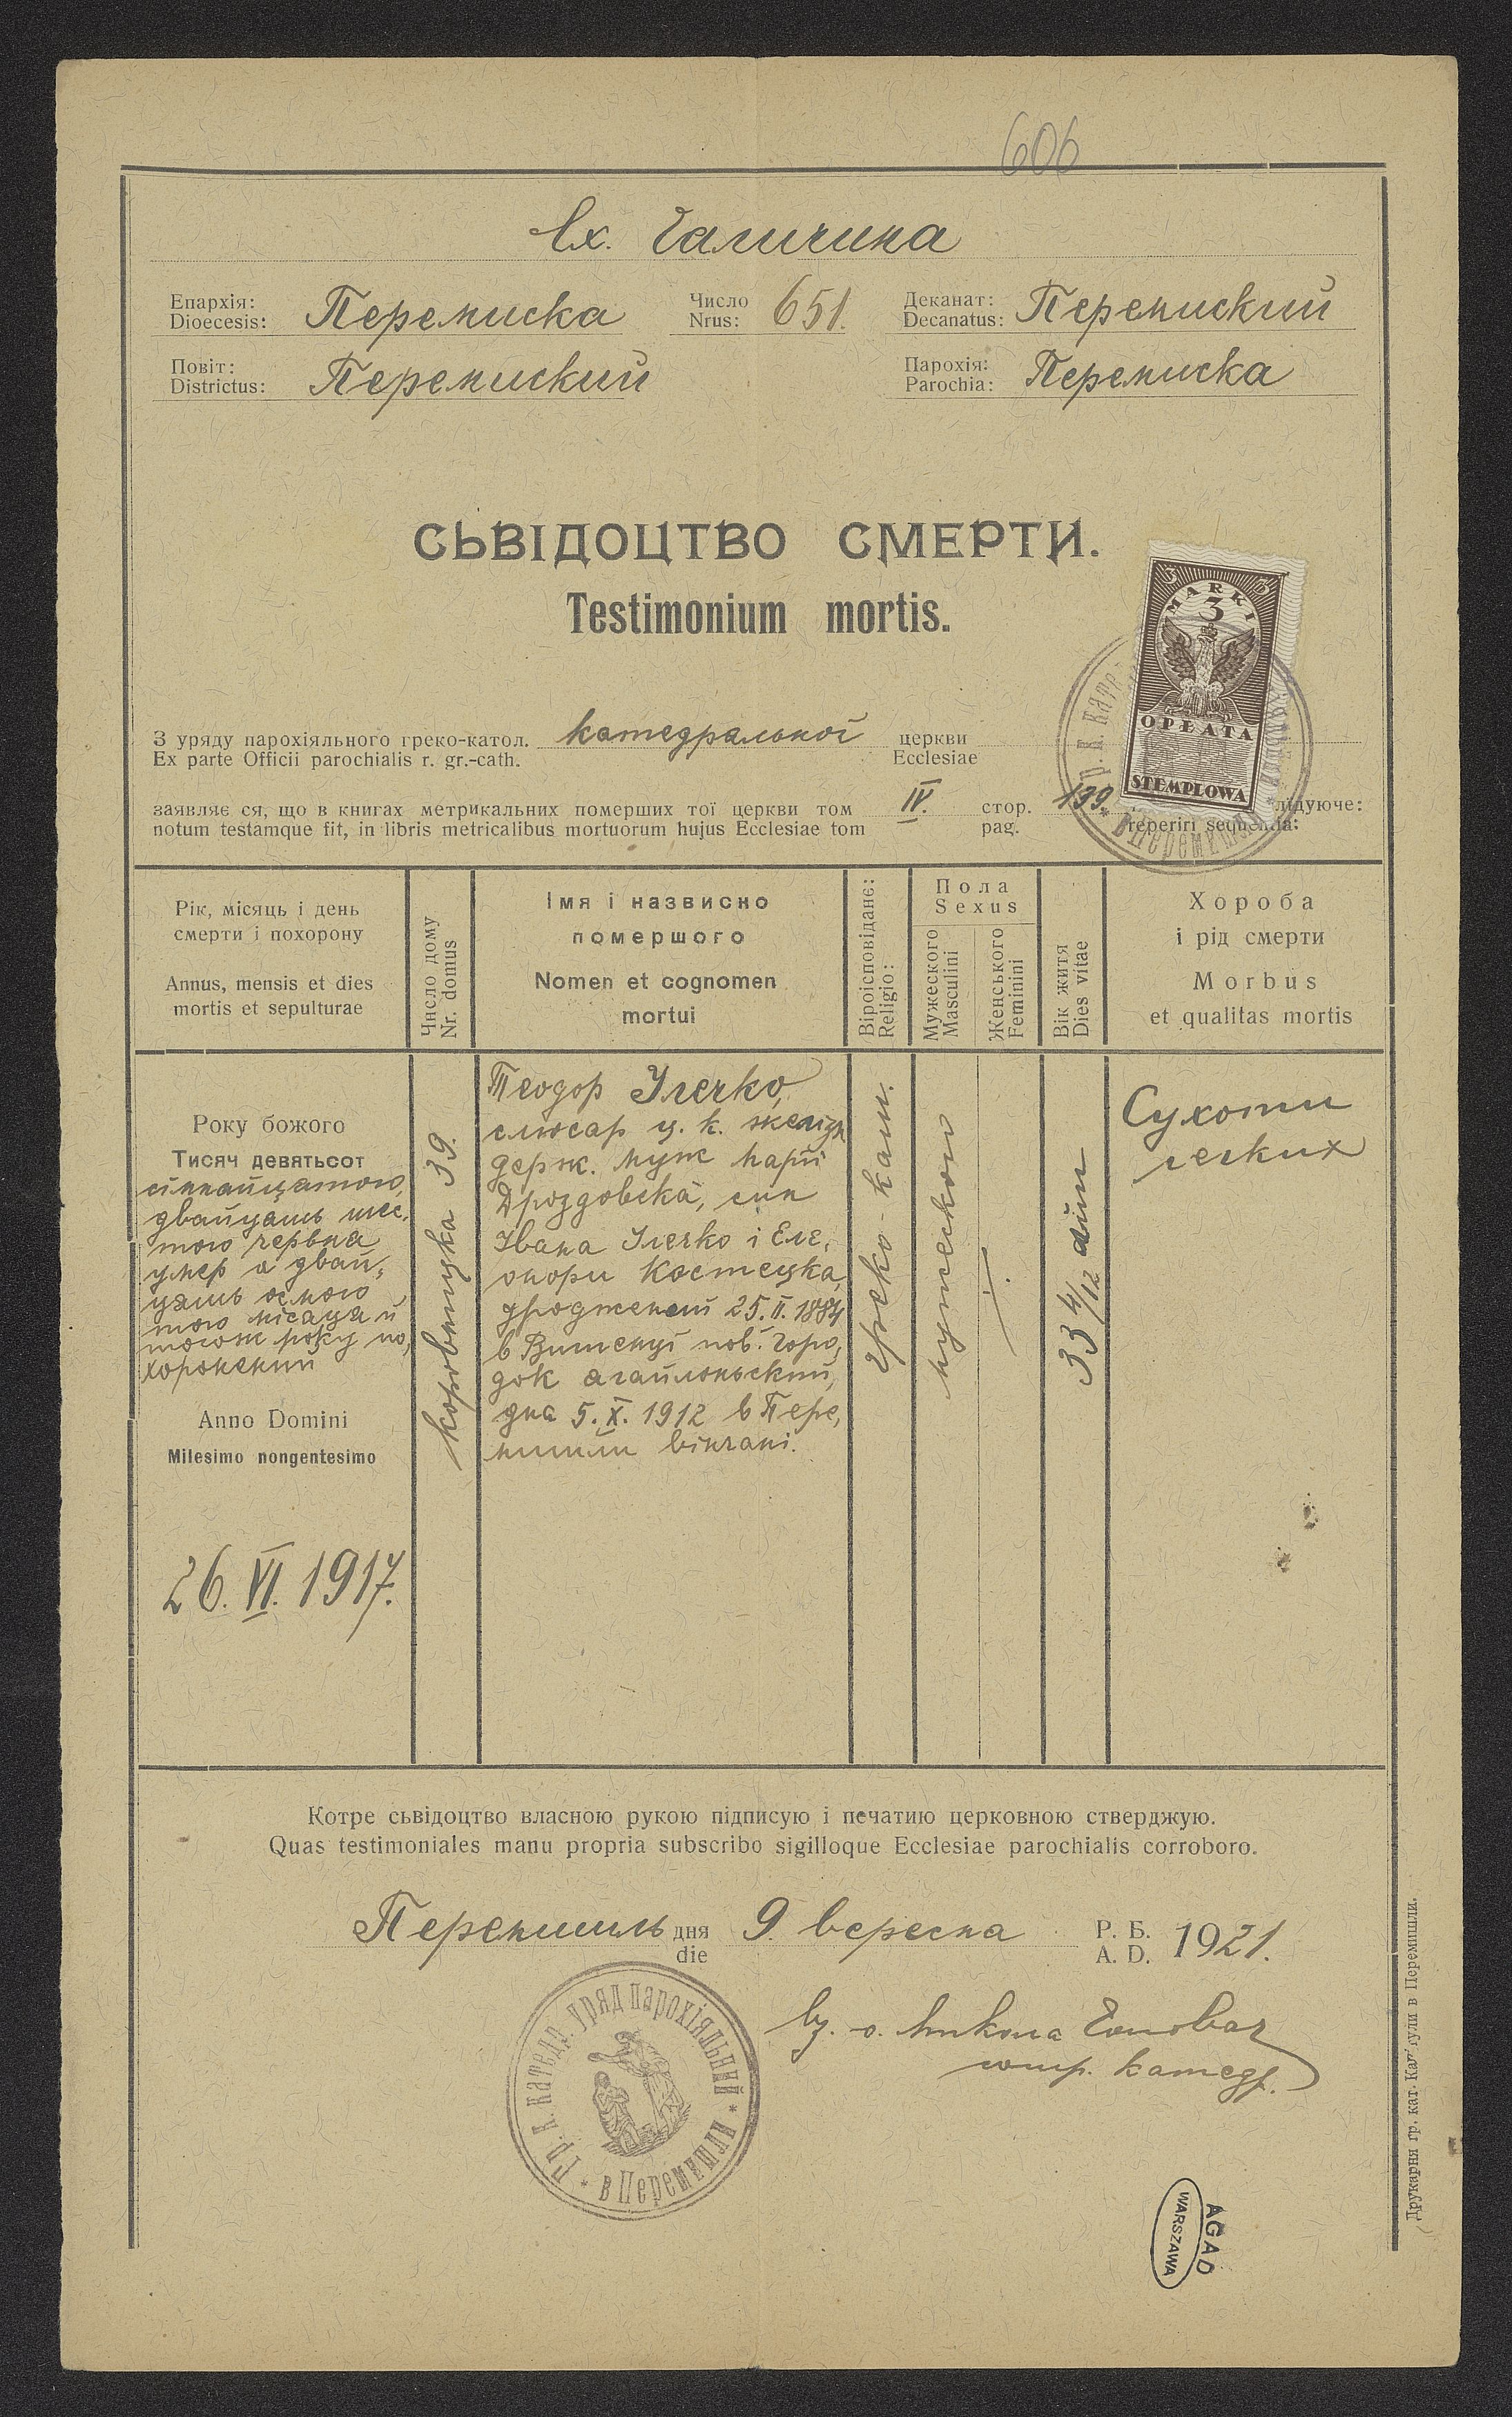 606
Сх. Галичина
Епархія: Перемиска Число 651. Деканат: Перемиский
Dioecesis: Nrus: Decanatus:
Повіт: Перемиский Парохія: Перемиска
Districtus: Parochia:
СЬВІДОЦТВО СМЕРТИ.
Testimonium mortis.
3 MARKI 3
3
OPŁATA
STEMPLOWA
З уряду парохіяльного греко-катол. катедральної церкви
Ex parte Officii parochialis r. gr.-cath. Ecclesiae
заявляє ся, що в книгах метрикальних померших тої церкви том IV. стор. 199 лїдуюче:
notum testamque fit, in libris metricalibus mortuorum hujus Ecclesiae tom pag. reperiri sequentia:
Рік, місяць і день
смерти і похорону
Annus, mensis et dies
mortis et sepulturae
Число дому
Nr. domus
Імя іназвиско
помершого
Nomen et cognomen
mortui
Віроісповіданє:
Religio:
Пола
Sexus
Мужеского
Masculini
Женського
Feminini
Вік житя
Dies vitae
Хороба
і рід смерти
Morbus
et qualitas mortis
Року божого
Тисяч девятьсот
сімнайцятого,
двайцять шес,
того червня
умер а двай,
цять осмого
того місяця й
тогож року по,
хоронений
Anno Domini
Milesimo nongentesimo
26. VI. 1917.
39.
Теодор Ілечко,
слюсар ц. к. желізн
держ. муж Марії
Дроздовска, син
Івана Ілечко і Еле,
онори Костецка,
уроджений 25. II. 1884
в пов. Горо,
док ягайлоньский,
дня 5. X. 1912 в Пере,
мишли вінчані.
греко-кат.
мужеского
33 4/12 літ
Сухоти
легких
Котре сьвідоцтво власною рукою підписую і печатию церковною стверджую.
Quas testimoniales manu propria subscribo sigilloque Ecclesiae parochialis corroboro.
Перемишль дня 9. вересня Р. Б. 1921.
die A. D.
о. Микола Головач
сотр. катедр.
Гр. к. катедр. уряд парохіяльний * в Перемишли *
AGAD
WARSZAWA
Друкарня гр. кат. Капітули в Перемишли.